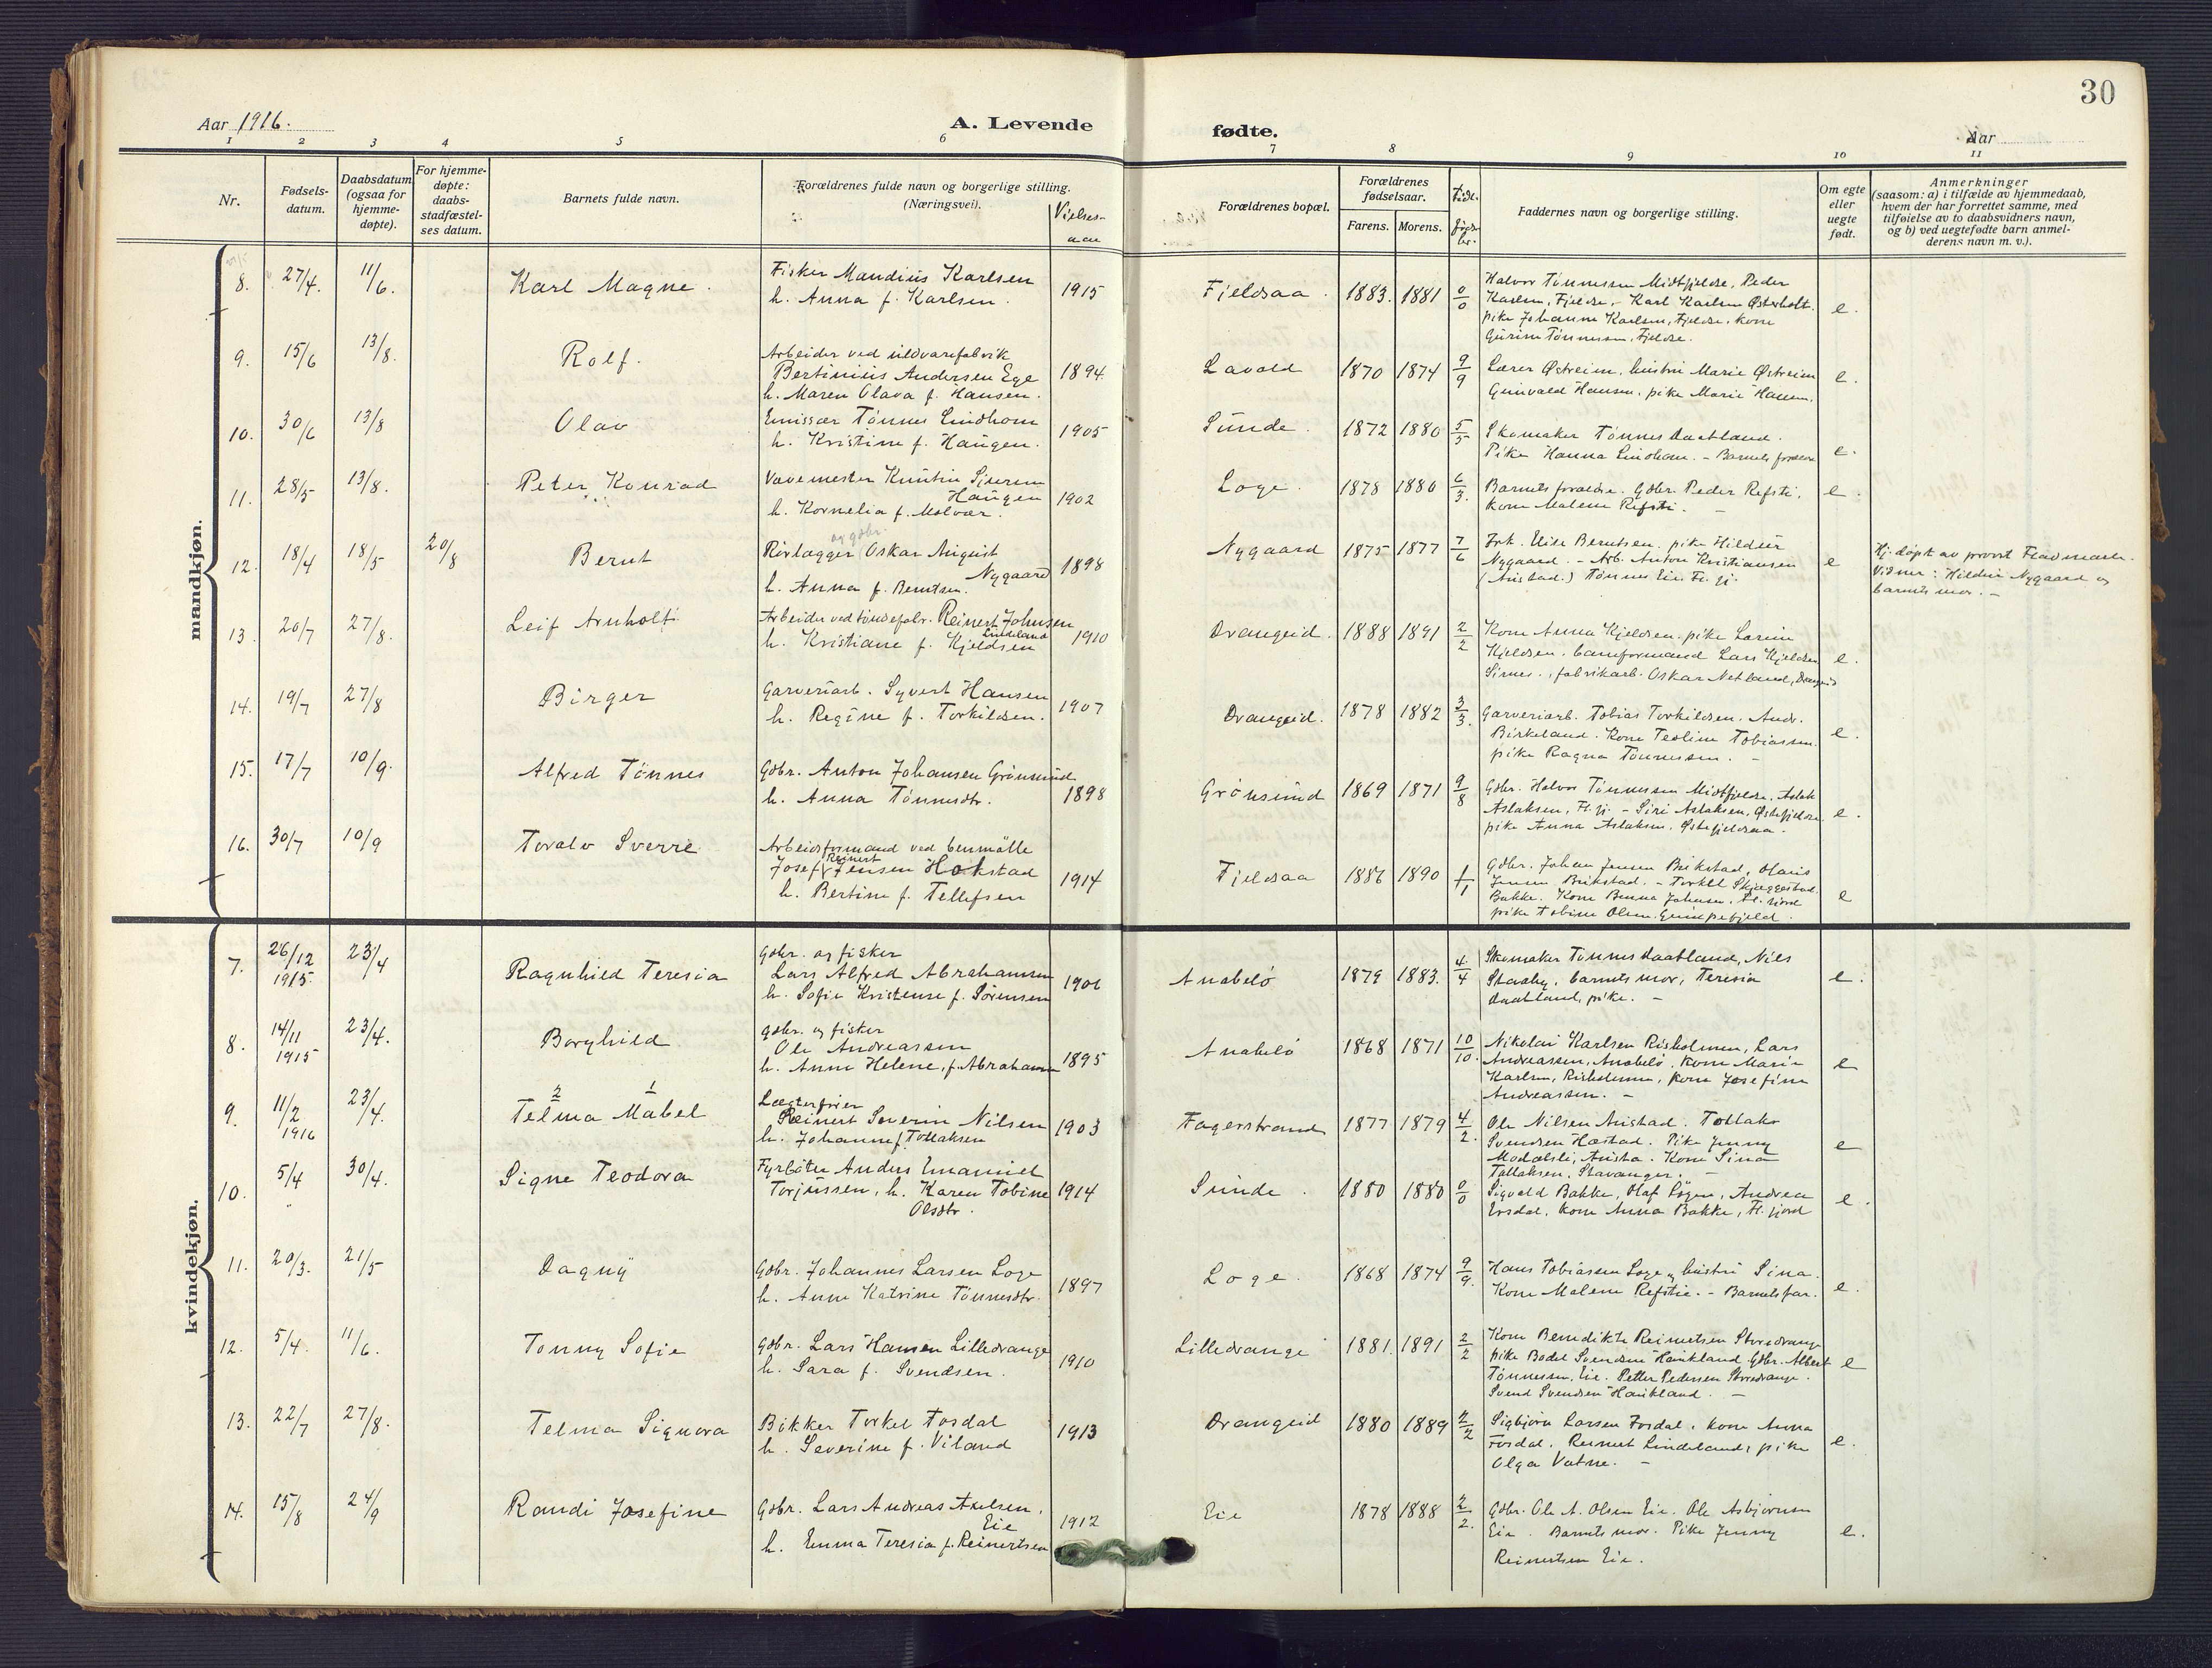 30
Aar 1916.
A. Levende
fødte.
Aar
1 2 3 4 5 6 7 8 9 10 11
Nr.
Fødsels-
datum.
Daabsdatum
(ogsaa for
hjemme-
døpte).
For hjemme-
døpte:
daabs-
stadfæstel-
ses datum.
Barnets fulde navn.
Forældrenes fulde navn og borgerlige stilling.
(Næringsvei).
Vielses-
aar
Forældrenes bopæl.
Forældrenes
fødselsaar.
Farens. Morens.
Faddernes navn og borgerlige stilling.
Om egte
eller
uegte
født.
Anmerkninger
(saasom: a) i tilfælde av hjemmedaab,
hvem der har forrettet samme, med
tilføielse av to daabsvidners navn,
og b) ved uegtefødte barn anmel-
derens navn m. v.).
mandkjøn.
8. 27/4. 11/6. Karl Magne. Fisker Mandius Karlsen
h. Anna f. Karlsen. 1915 Fjeldsaa. 1883. 1881 0/0
Halvor Tønnessen Midtfjeldse, Peder
Karlsen, Fjeldse, - Karl Karlsen Østerholt.
pike Johanne Karlsen, Fjeldse, kone
Gurine Tønnessen, Fjeldse. e.
9. 15/6 13/8. Rolf. Arbeider ved uldvarefabrik
Bertinius Andersen Ege
h. Maren Olava f. Hansen. 1894 Lavold 1870 1874 9/9
Lærer Østreim, hustru Marie Østreim
Gunvald Hansen, pike Marie Hansen. e.
10. 30/6 13/8 Olav Emissær Tønnes Lindhom
h. Kristine f. Haugen. 1905 Sunde. 1872 1880 5/5
Skomaker Tønnes Daatland.
Pike Hanna Lindhom. - Barnets forældre e.
11. 28/5 13/8. Peter Konrad Vævemester Knut Sjursen
Haugen
h. Kornelia f. Molvær. 1902 Loge. 1878 1880 6/3.
Barnets forældre. Gdbr. Peder Refsti,
kone Malene Refsti. - e.
12. 18/4 18/5 20/8 Bernt og gdbr.
Rørlægger Oskar August
Nygaard
h. Anna f. Berntsen. 1898 Nygaard 1875 1877 7/6
Frk. Elise Berntsen. pike Hildur
Nygaard. - Arb. Anton Kristiansen
(Anistad.) Tønnes Eie. Fl. fj. e
Hj. døpt av provst Flodmark.
Vidner: Hildur Nygaard og
barnets mor. -
13. 20/7 27/8. Leif Arnholt Arbeider ved tøndefabr. Reinert Johnsen
Lindland
h. Kristiane f. Kjeldsen 1910 Drangeid. 1888 1891 2/2
Kone Anna Kjeldsen. pike Larine
Kjeldsen. baneformand Lars Kjeldsen
Sirnes., fabrikarb. Oskar Netland, Drangeid e.
14. 19/7 27/8 Birger Garveriarb. Syvert Hansen
h. Regine f. Torkildsen. 1907 Drangeid. 1878 1882 3/3.
Garveriarb. Tobias Torkildsen. Andr.
Birkeland. Kone Teoline Tobiassen.
pike Ragna Tønnessen. - e.
15. 17/7 10/9. Alfred Tønnes Gdbr. Anton Johansen Grønsund
h. Anna Tønnesdtr. 1898 Grønsund 1869 1871 9/8
Gdbr. Halvor Tønnessen Midtfjeldse, Aslak
Aslaksen, Fl. fj. - Siri Aslaksen, Østefjeldse
pike Anna Aslaksen. Østefjeldsaa. e.
16. 30/7 10/9 Toralv Sverre Arbeidsformand ved benmølle
Josef Reinert Jensen Hokstad
h. Bertine f. Tellefsen 1914 Fjeldsaa 1886 1890 1/1
Gdbr. Johan Jensen Birkstad, Olaus
Jensen Birkstad. - Torkel Skjeggestad
Bakke. Kone Benna Johnsen. Fl. fjord
pike Tobine Olsen. Gumpefjeld. e
kvindekjøn.
7. 26/12 1915. 23/4 Ragnhild Teresia Gdbr. og fisker
Lars Alfred Abrahamsen
h. Sofie Kristense f. Sørensen 1906 Anabelø 1879 1883. 4/4
Skomaker Tønnes Daatland, Nils
Stadby, barnets mor, Teresia
Daatland, pike. - e.
8. 14/11 1915 23/4. Borghild Gdbr. og fisker
Ole Andreassen
h. Anne Helene, f. Abrahamsen 1895 Anabelø 1868 1871 10/10.
Nikolai Karlsen Risholmen, Lars
Andreassen, Anabelø. kone Marie
Karlsen, Risholmen, kone Josefine
Andreassen. - e
9. 11/2 1916 23/4. 2 1
Telma Mabel Lægterfører
Reinert Severin Nilsen
h. Johanne f. Tollaksen 1903 Fagerstrand 1877 1879 4/2.
Ole Nilsen Anistad. Tollak
Svendsen Hæstad. Pike Jenny
Modalsli, Anista. Kone Sina
Tollaksen, Stavanger. - e
10. 5/4 30/4. Signe Teodora Fyrbøter Anders Emanuel
Torjussen, h. Karen Tobine
Olsdtr. 1914 Sunde. 1880 1880 0/0
Sigvald Bakke, Olaf Løgen, Andrea
Ersdal, kone Anna Bakke, Fl. fjord e.
11. 20/3. 21/5 Dagny Gdbr. Johannes Larsen Loge
h. Anne Katrine Tønnesdtr. 1897 Loge. 1868 1874 9/9.
Hans Tobiassen Loge og hustru Sina.
Kone Malene Refstie. - Barnets far. e.
12. 5/4. 11/6. Tonny Sofie Gdbr. Lars Hansen Lilledrange
h. Sara f. Svendsen. 1910 Lilledrange 1881. 1891 2/2
Kone Benedikte Reinertsen Storedrange
pike Bodel Svendsen Haukland. Gdbr. Albert
Tønnessen, Eie. Petter Pedersen Storedrange.
Svend Svendsen Haukland. - e
13. 22/7 27/8. Telma Signora Bøkker Torkel Fosdal
h. Severine f. Viland 1913 Drangeid 1880 1889 2/2
Sigbjørn Larsen Fosdal, kone Anna
Fosdal. Reinert Lindeland, pike
Olga Vatne. - e.
14. 15/8 24/9 Randi Josefine Gdbr. Lars Andreas Axelsen,
Eie
h. Emma Teresia f. Reinertsen 1912 Eie 1878 1888 2/2.
Gdbr. Ole A. Olsen Eie. Ole Asbjørnsen
Eie. Barnets mor. Pike Jenny
Reinertsen Eie. e.